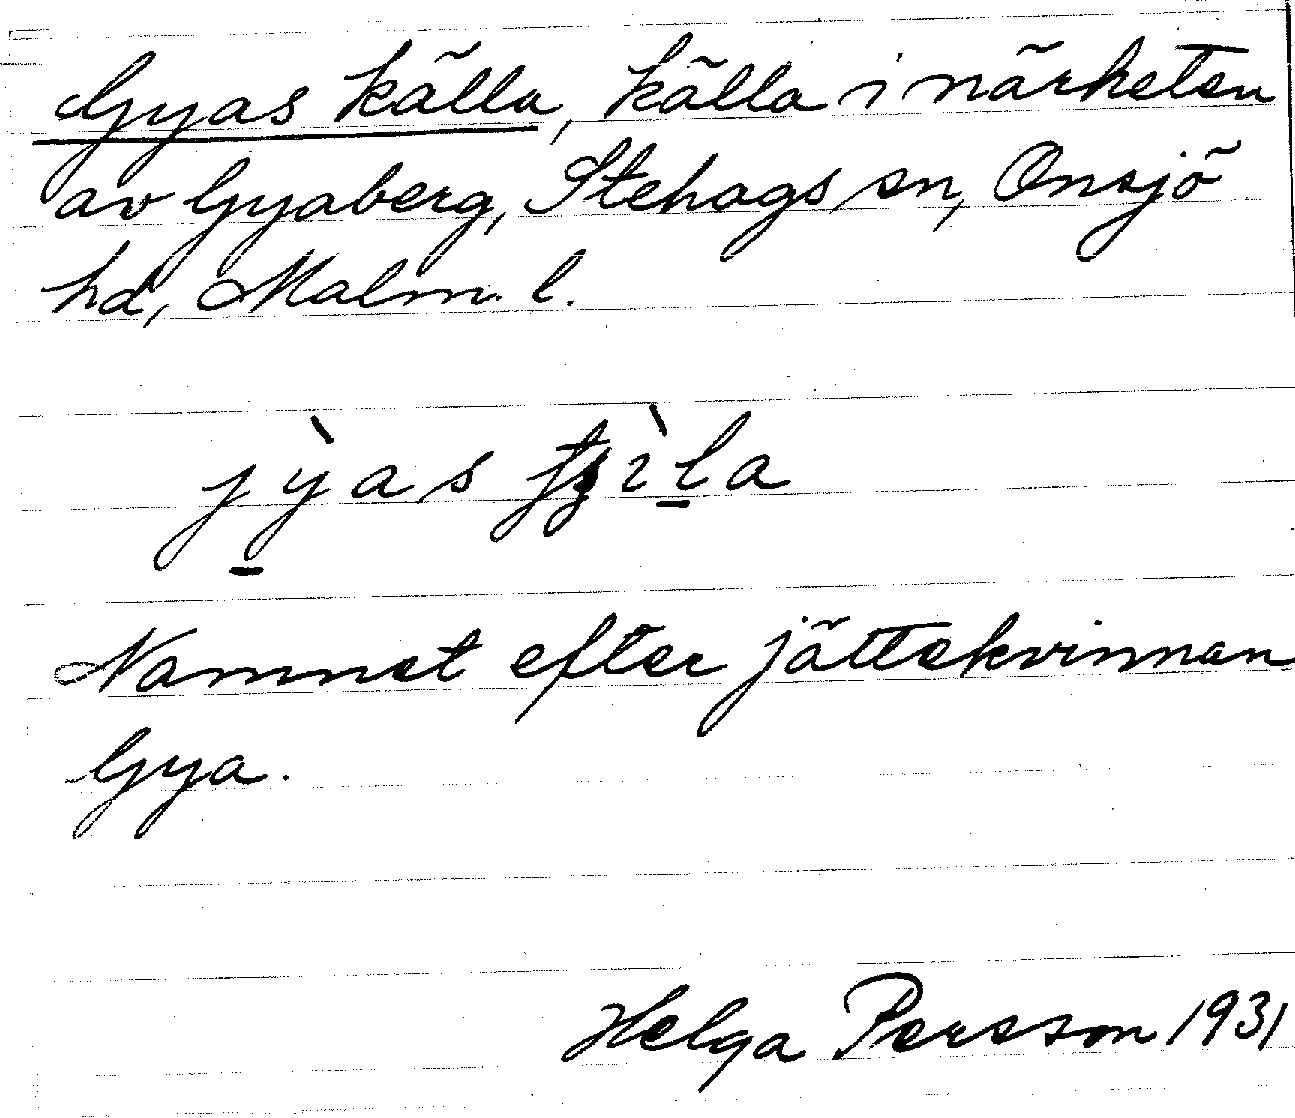 Gyas källa, källa i närheten
av Gyaberg, Stehags sn, Onsjö
hd, Malm. l.
jỳas
Namnet efter jättekvinnan
Gya.
Helga Persson 1931